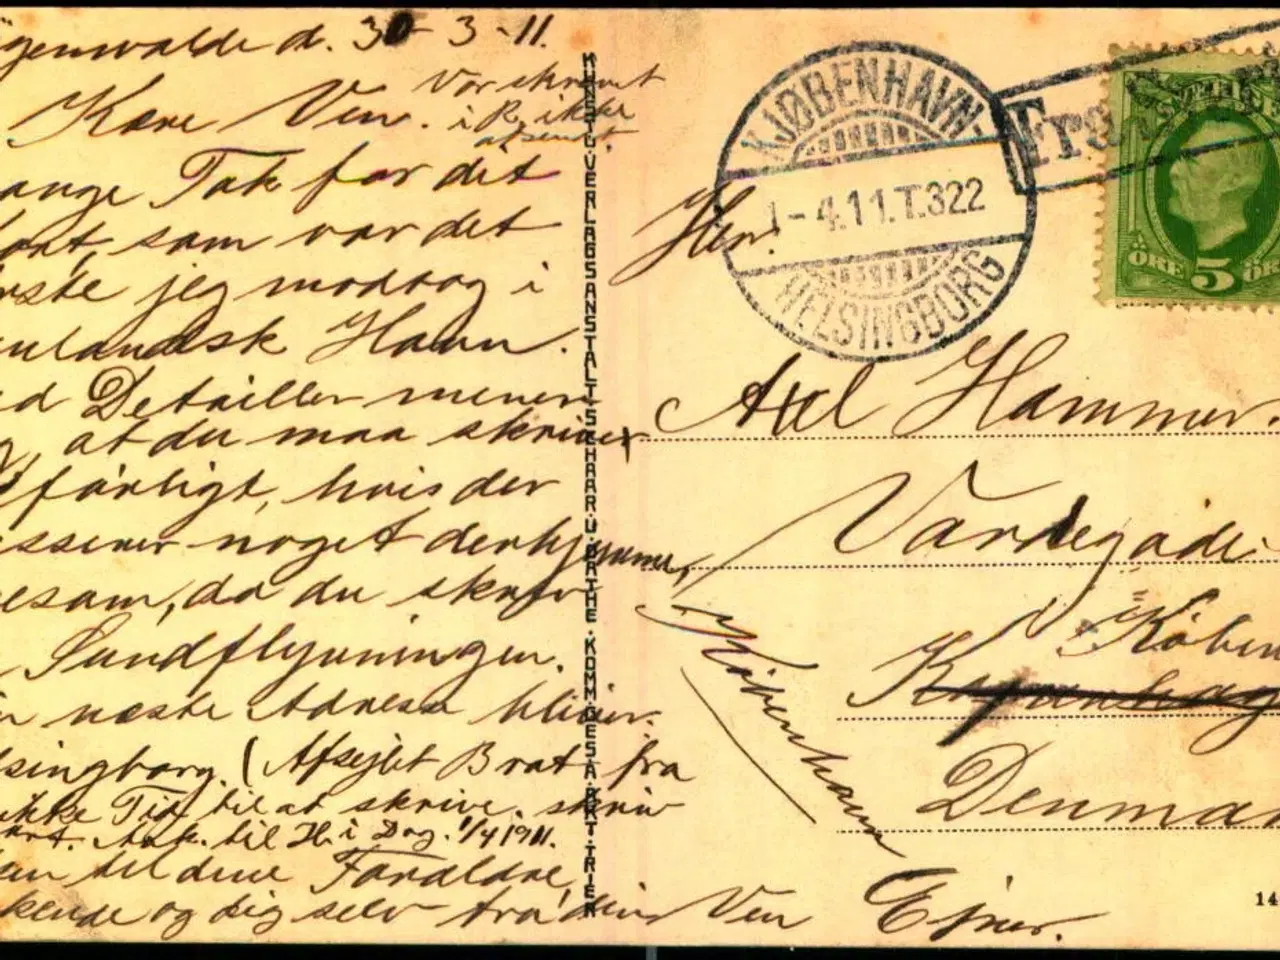 genwalde d. 30-3-11.
Kære Ven. Var skrevet
i R. ikke
afsendt.
ange Tak for det
kort, som var det
rste jeg modtog i
enlandsk Havn.
d Detailler mener
g, at du maa skrive
færligt, hvis der
sserer noget derhjemme,
esom, da du skrev
Sundflyvningen.
n næste Adresse bliver
lsingborg. (Afsejlet Brat fra
ikke Tid til at skrive. skriv
Ank. til H. i Dag. 1/4 1911.
en til dine Forældre,
kende og dig selv fra din Ven Ejner.
KUNST- U. VERLAGSANSTALT SCHAAR U. DATHE KOMM.GES.A.AKT. TRIER
KJØBENHAVN-
1-4.11.T.322
HELSINGBORG
Fra
SVERIGE
ÖRE 5 ÖRE
Herr
Axel Hammer.
Vardegade
i Køben
Kopenhag
København
Denmar
14